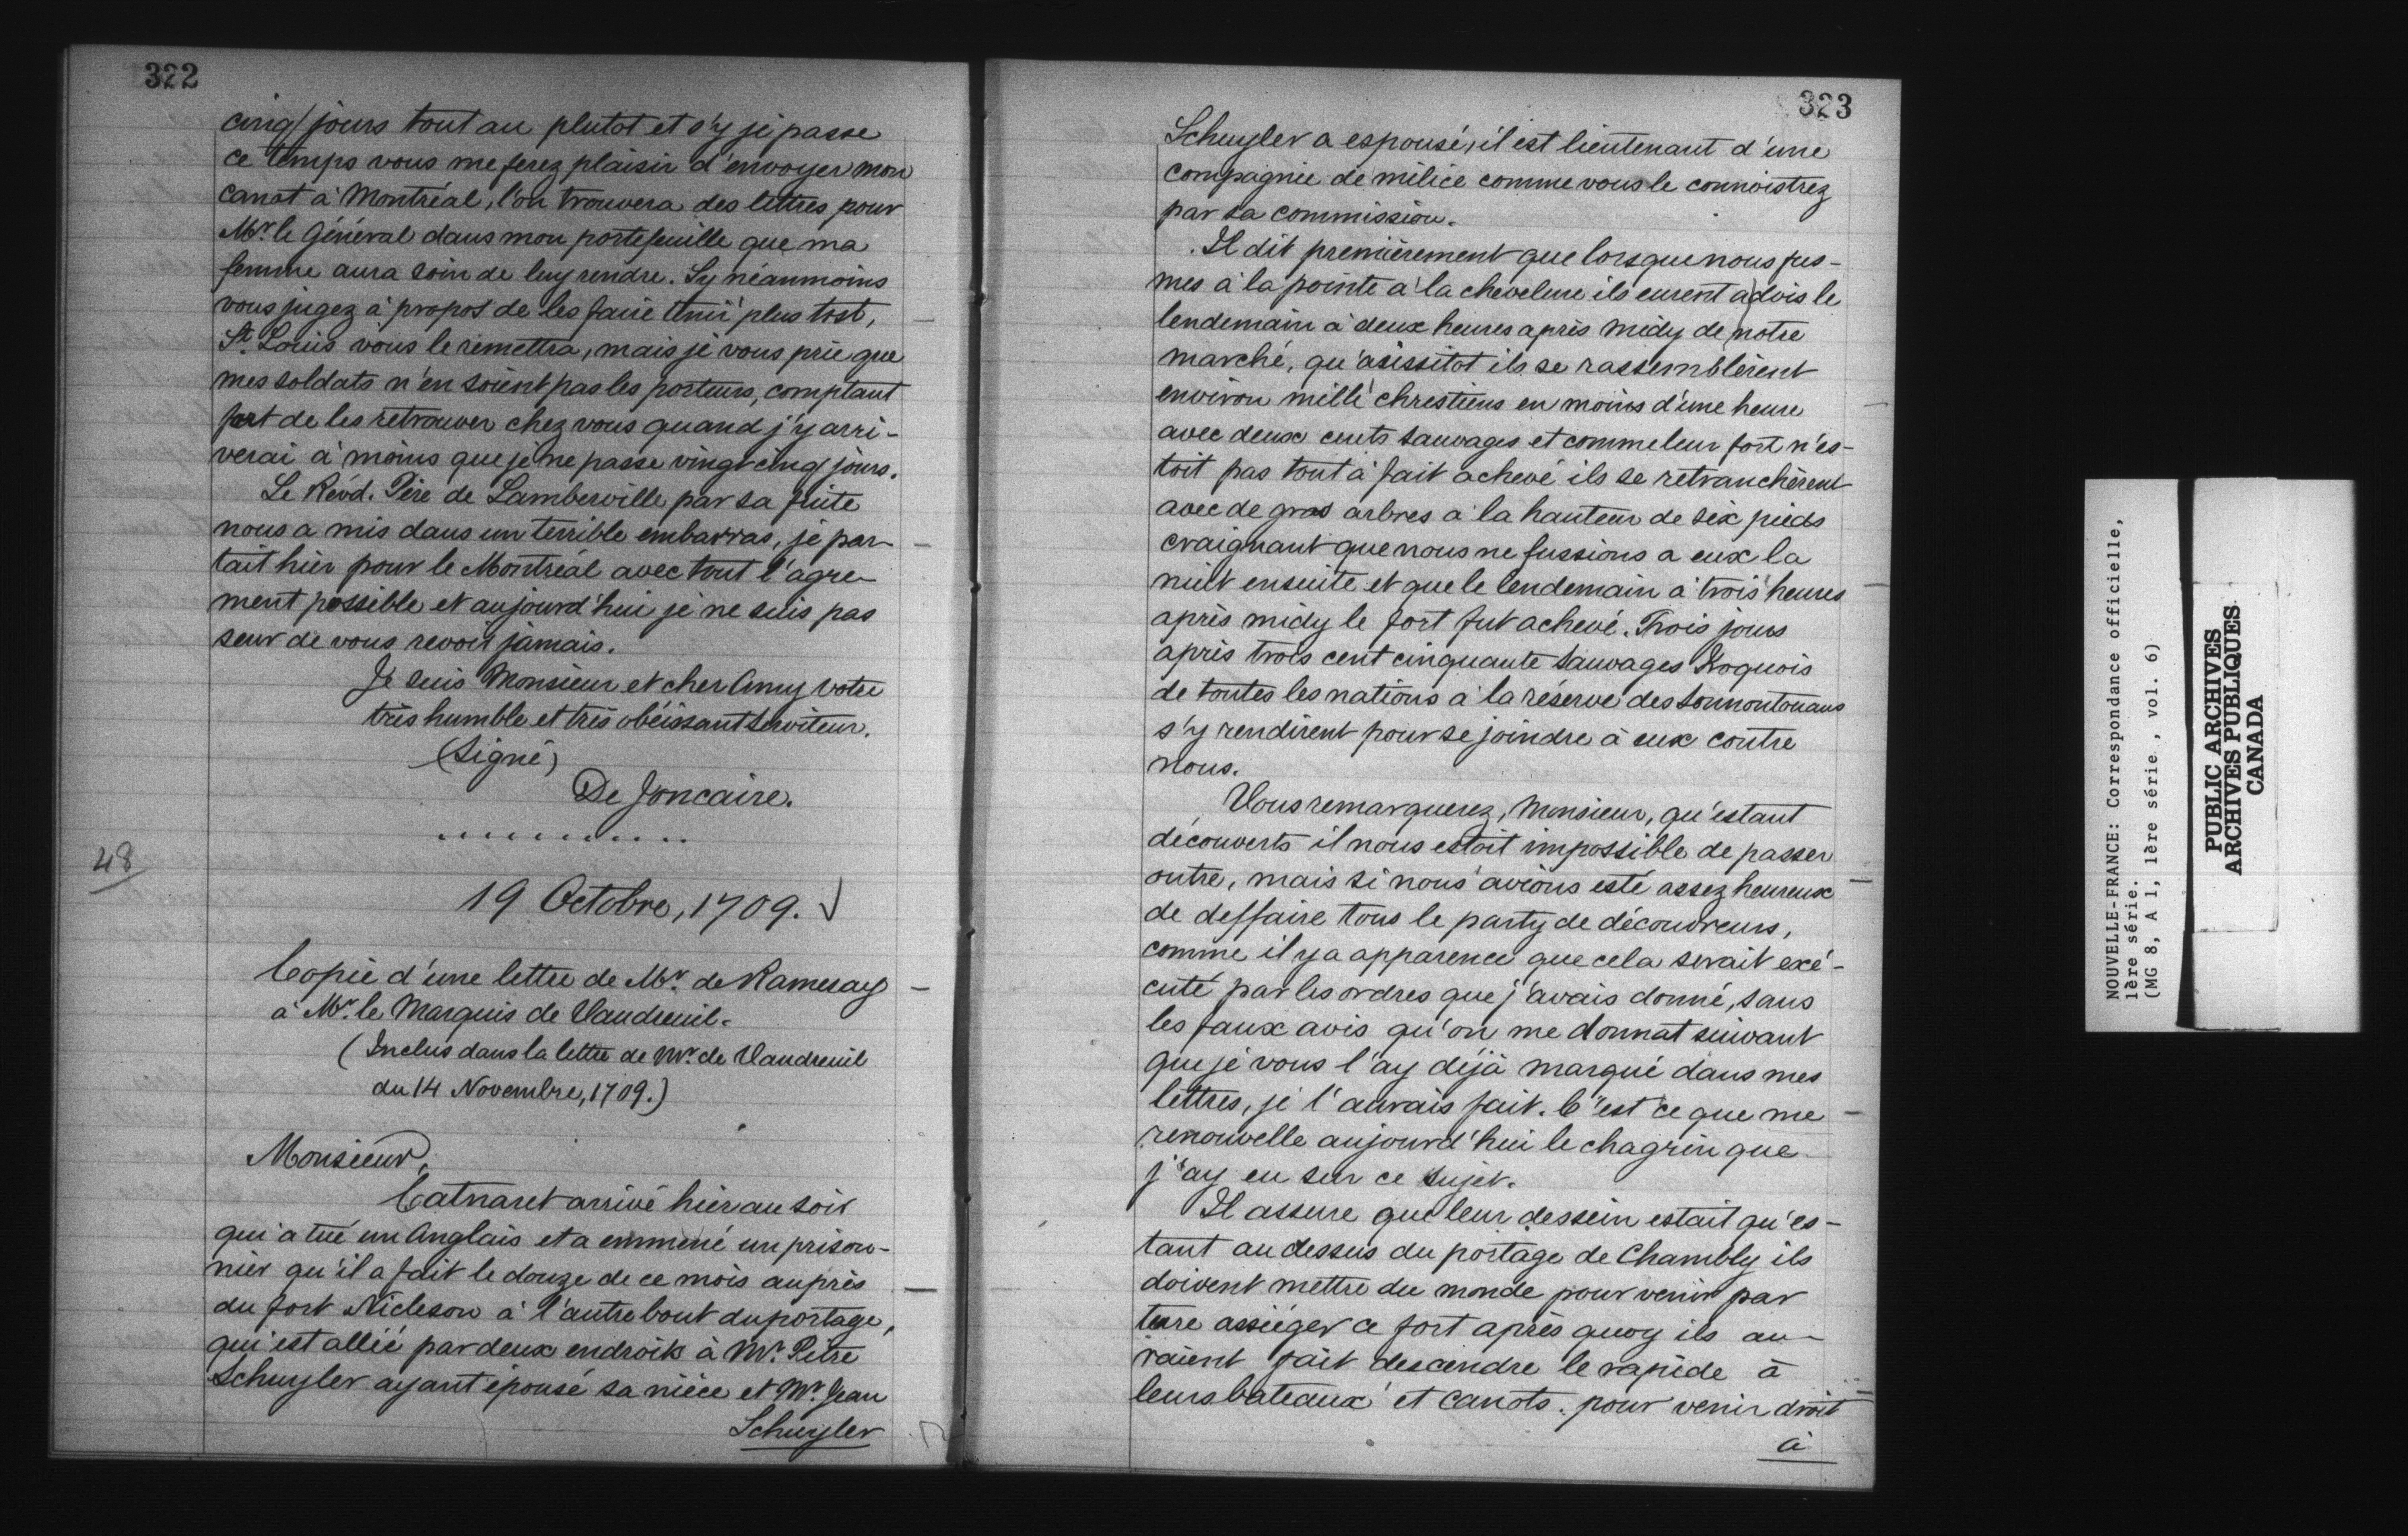 322
cinq jours tout au plutot et s'y je passe
ce temps vous me ferez plaisir d'envoyer mon
canot à Montréal, l'on trouvera des lettres pour
Mr. le Général dans mon portefeuille que ma
femme aura soin de luy rendre. Sy néanmoins
vous jugez à propos de les faire tenir plus tost,
St. Louis vous le remettra, mais je vous prie que
mes soldats n'en soient pas les porteurs, comptant
fort de les retrouver chez vous quand j'y arri-
verai à moins que je ne passe vingt cinq jours.
Le Révd. Père de Lamberville par sa fuite
nous a mis dans un terrible embarras, je par-
tait hier pour le Montréal avec tout l'agre-
ment possible et aujourd'hui je ne suis pas
seur de vous revoir jamais.
Je suis Monsieur et cher Amy votre
très humble et très obéissant serviteur.
(Signé)
De Joncaire.
............
48
19 Octobre, 1709. √
Copie d'une lettre de Mr. de Ramesay
à Mr. le Marquis de Vaudreuil.
(Inclus dans la lettre de Mr. de Vaudreuil
du 14 Novembre, 1709.)
Monsieur,
Catnaret arrivé hier au soir
qui a tué un Anglais et a emmené un prison-
nier qu'il a fait le douze de ce mois auprès
du fort Nicleson à l'autre bout du portage,
qui est allié par deux endroits à Mr. Petre
Schuyler ayant épousé sa nièce et Mr. Jean
Schuyler
323
Schuyler a espousé, il est lieutenant d'une
compagnie de milice comme vous le connoistrez
par sa commission.
Il dit premièrement que lorsque nous fus-
mes à la pointe à la chevelure ils eurent advis le
lendemain à deux heures après midy de notre
marché, qu'aussitot ils se rassemblèrent
environ mille chrestiens en moins d'une heure
avec deux cents sauvages et comme leur fort n'es-
toit pas tout à fait achevé ils se retranchèrent
avec de gros arbres à la hauteur de six pieds
craignant que nous ne fussions a eux la
nuit ensuite et que le lendemain à trois heures
après midy le fort fut achevé. Trois jours
après trois cent cinquante sauvages Iroquois
de toutes les nations à la réserve des sonnontouans
s'y rendirent pour se joindre à eux contre
nous.
Vous remarquerez, Monsieur, qu'estant
découverts il nous estoit impossible de passer
outre, mais si nous avions esté assez heureux
de deffaire tous le party de découvreurs,
comme il y a apparence que cela serait exé-
cuté par les ordres que j'avais donné, sans
les faux avis qu'on me donnat suivant
que je vous l'ay déjà marqué dans mes
lettres, je l'aurais fait. C'est ce que me
renouvelle aujourd'hui le chagrin que
j'ay eu sur ce sujet.
Il assure que leur dessein estait qu'es-
tant au dessus du portage de Chambly ils
doivent mettre du monde pour venir par
terre assiéger ce fort après quoy ils au-
raient fait descendre le rapide à
leurs bateaux et canots. pour venir droit
à
NOUVELLE-FRANCE: Correspondance officielle,
1ère série.
(MG 8, A 1, 1ère série, vol. 6)
PUBLIC ARCHIVES
ARCHIVES PUBLIQUES
CANADA